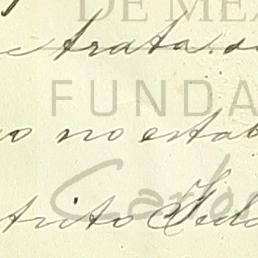 DE MÉX
e trata d
FUNDA
no estab
Carlos
trito Fede